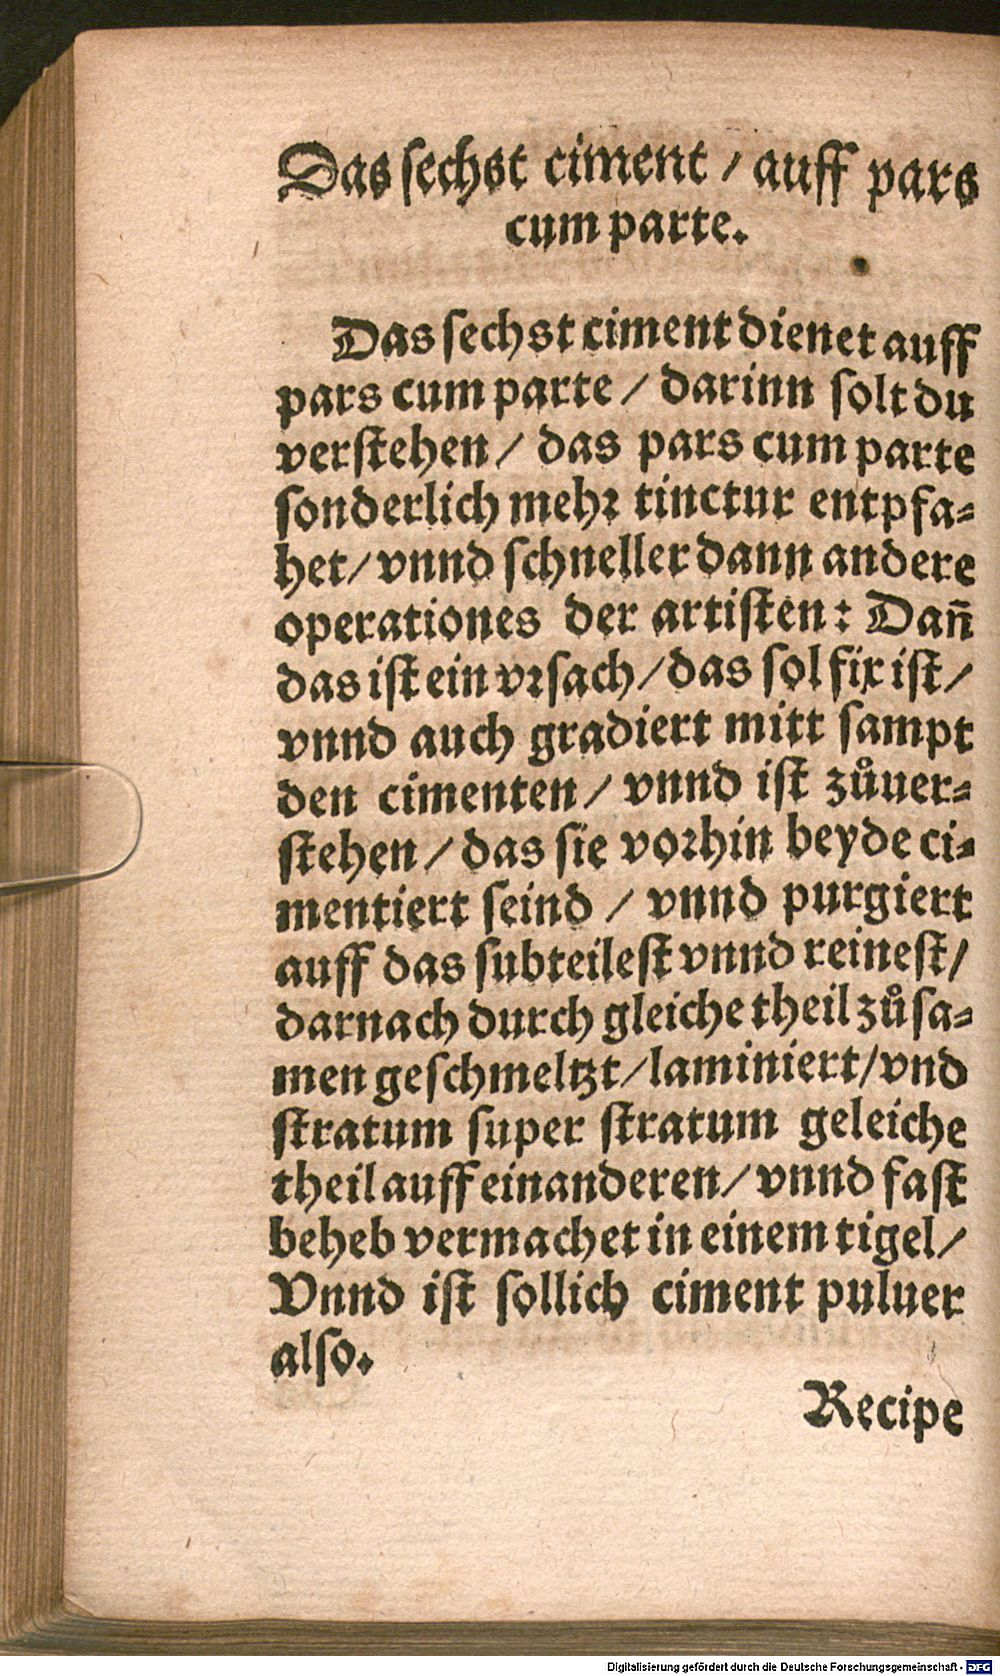 Das sechst ciment / auff pars
cum parte.
Das sechst ciment dienet auff
pars cum parte / darinn solt du
verstehen / das pars cum parte
sonderlich mehr tinctur entpfa-
het / vnnd schneller dann andere
operationes der artisten: Dañ
das ist ein vrsach / das sol fix ist /
vnnd auch gradiert mitt sampt
den cimenten / vnnd ist zůuer-
stehen / das sie vorhin beyde ci-
mentiert seind / vnnd purgiert
auff das subteilest vnnd reinest /
darnach durch gleiche theil zůsa-
men geschmeltzt / laminiert / vnd
stratum super stratum geleiche
theil auff einanderen / vnnd fast
beheb vermachet in einem tigel /
Vnnd ist sollich ciment puluer
also.
Recipe
Digitalisierung gefördert durch die Deutsche Forschungsgemeinschaft - DFG